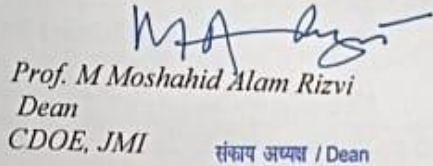 Prof. M Moshahid Alam Rizvi
Dean
CDOE, JMI
संकाय अध्यक्ष / Dean